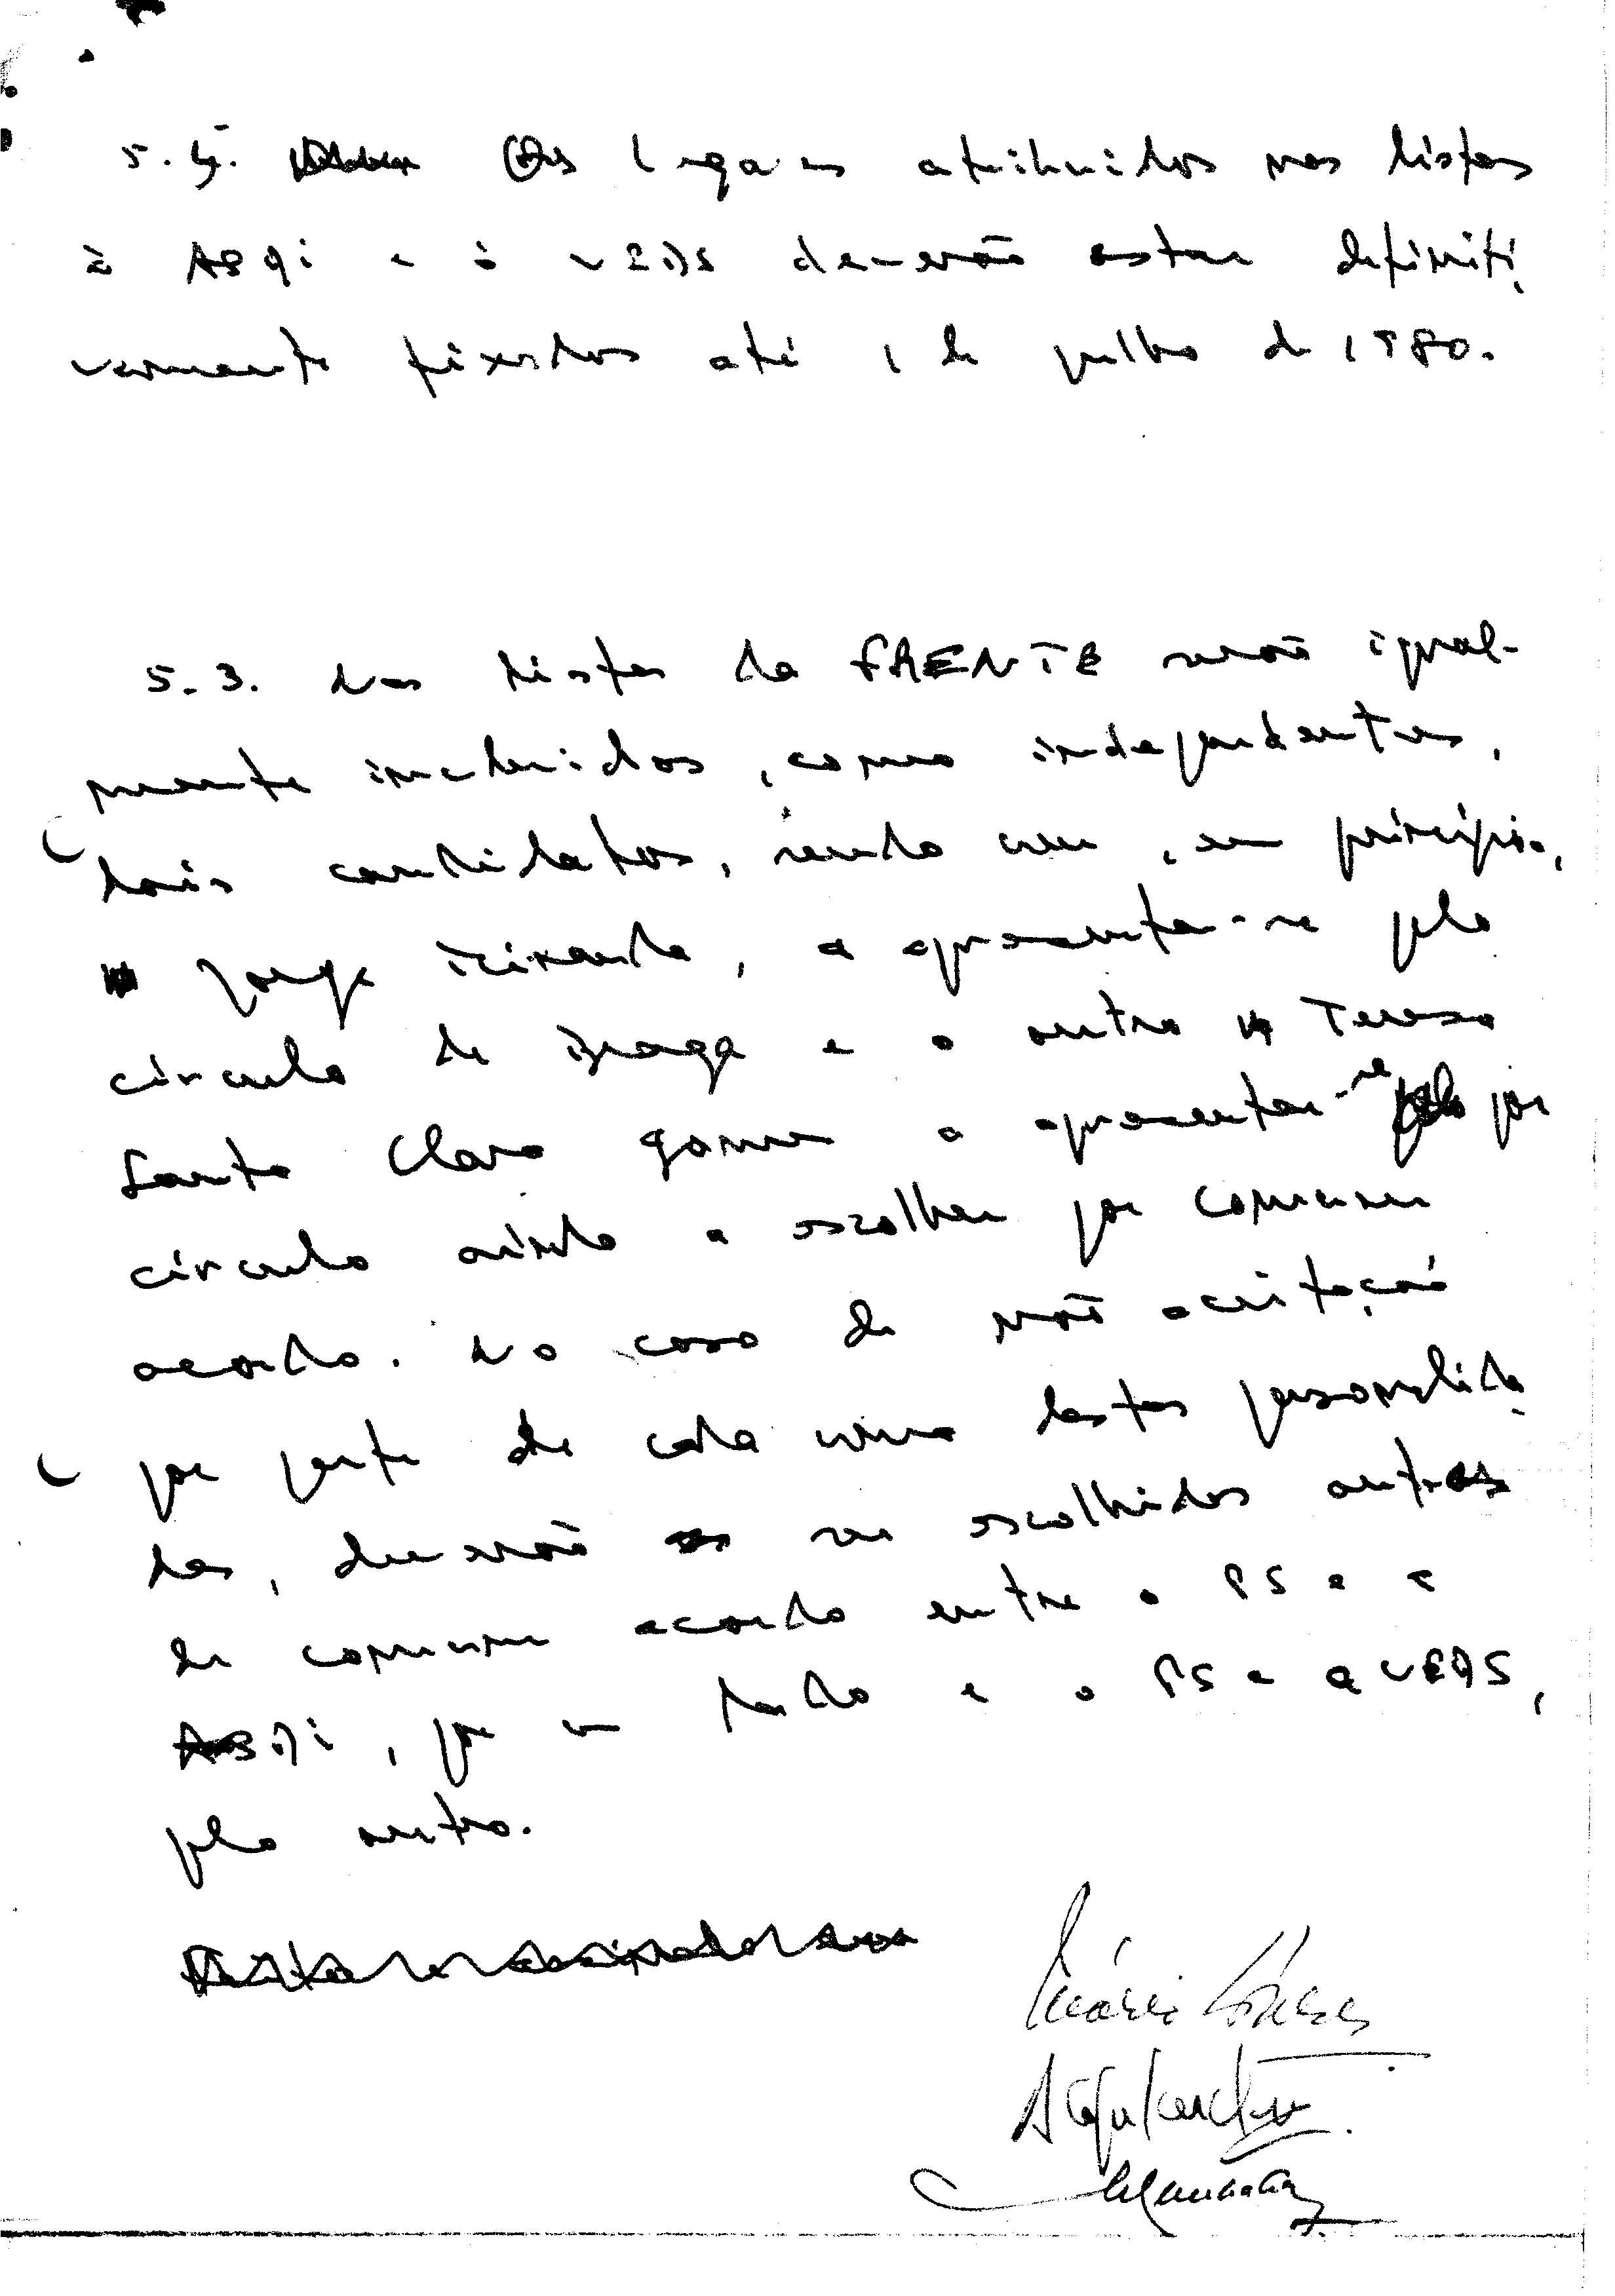 5.4. Os lugares atribuidos nas listas
à ASDI e à UEDS deverão estar definiti-
vamente fixados até 1 de julho de 1980.
5.3. Nas listas da FRENTE serão igual-
mente incluidos, como independentes,
dois candidatos, sendo um, em princípio,
Jorge Miranda, a apresentar-se pelo
círculo de Braga e o outro Teresa
Santa Clara Gomes a apresentar-se por
círculo ainda a escolher por comum
acordo. No caso de não aceitação
por parte de cada uma destas personalida-
des, deverão ser escolhidos outros
de comum acordo entre o PS e a
ASDI, por um lado e o PS e a UEDS,
pelo outro.
Mário Soares